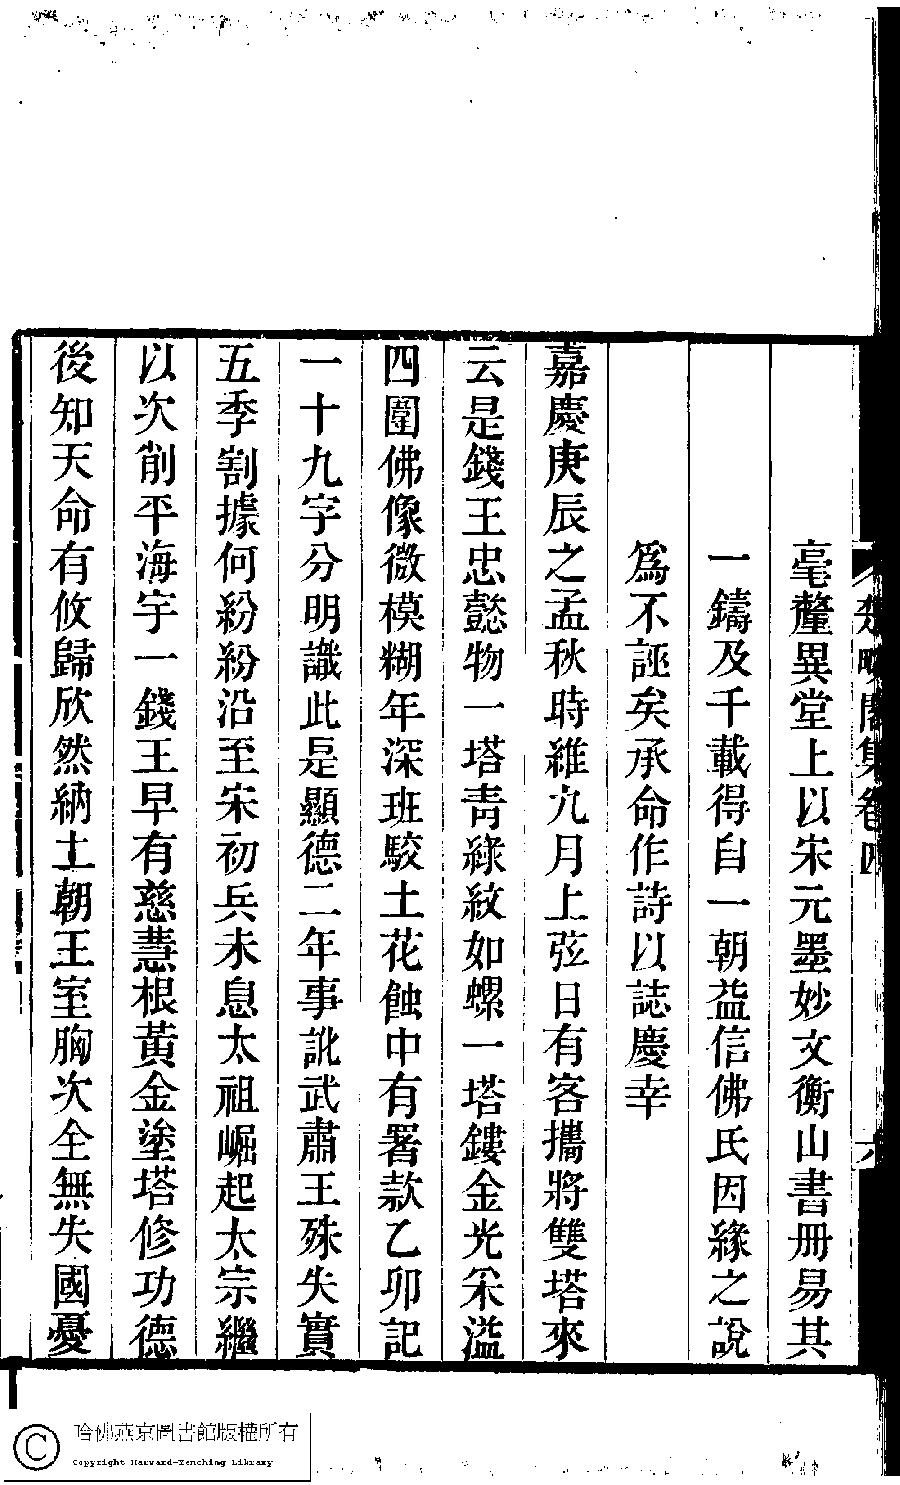 毫釐異堂上以宋元墨妙文衡山書冊易其
一鑄及千載得自一朝益信佛氏因緣之說
爲不誣矣承命作詩以誌慶幸
嘉慶庚辰之孟秋時維九月上弦日有客攜將雙塔來
云是錢王忠懿物一塔靑綠紋如螺一塔鏤金光采溢
四圍佛像微模糊年深班駮土花蝕中有署款乙卯記
一十九字分明識此是顯德二年事訛武肅王殊失實
五季割據何紛紛沿至宋初兵未息太祖崛起太宗繼
以次削平海宇一錢王早有慈慧根黃金塗塔修功德
後知天命有攸歸欣然納土朝王室胸次全無失國憂
集卷四
六
哈佛燕京圖書館版權所有
Copyright Harvard-Yenching Library